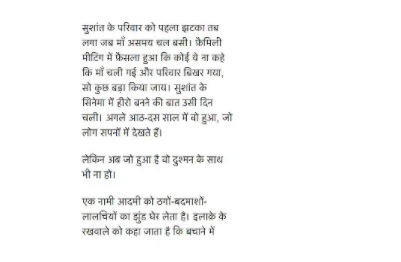 सुशांत के परिवार को पहला झटका तब
लगा जब माँ असमय चल बसी। फ़ैमिली
मीटिंग में फ़ैसला हुआ कि कोई ये ना कहे
कि माँ चली गई और परिवार बिखर गया,
सो कुछ बड़ा किया जाय। सुशांत के
सिनेमा में हीरो बनने की बात उसी दिन
चली। अगले आठ-दस साल में वो हुआ, जो
लोग सपनों में देखते हैं।
लेकिन अब जो हुआ है वो दुश्मन के साथ
भी ना हो।
एक नामी आदमी को ठगों-बदमाशों-
लालचियों का झुंड घेर लेता है। इलाक़े के
रखवाले को कहा जाता है कि बचाने में